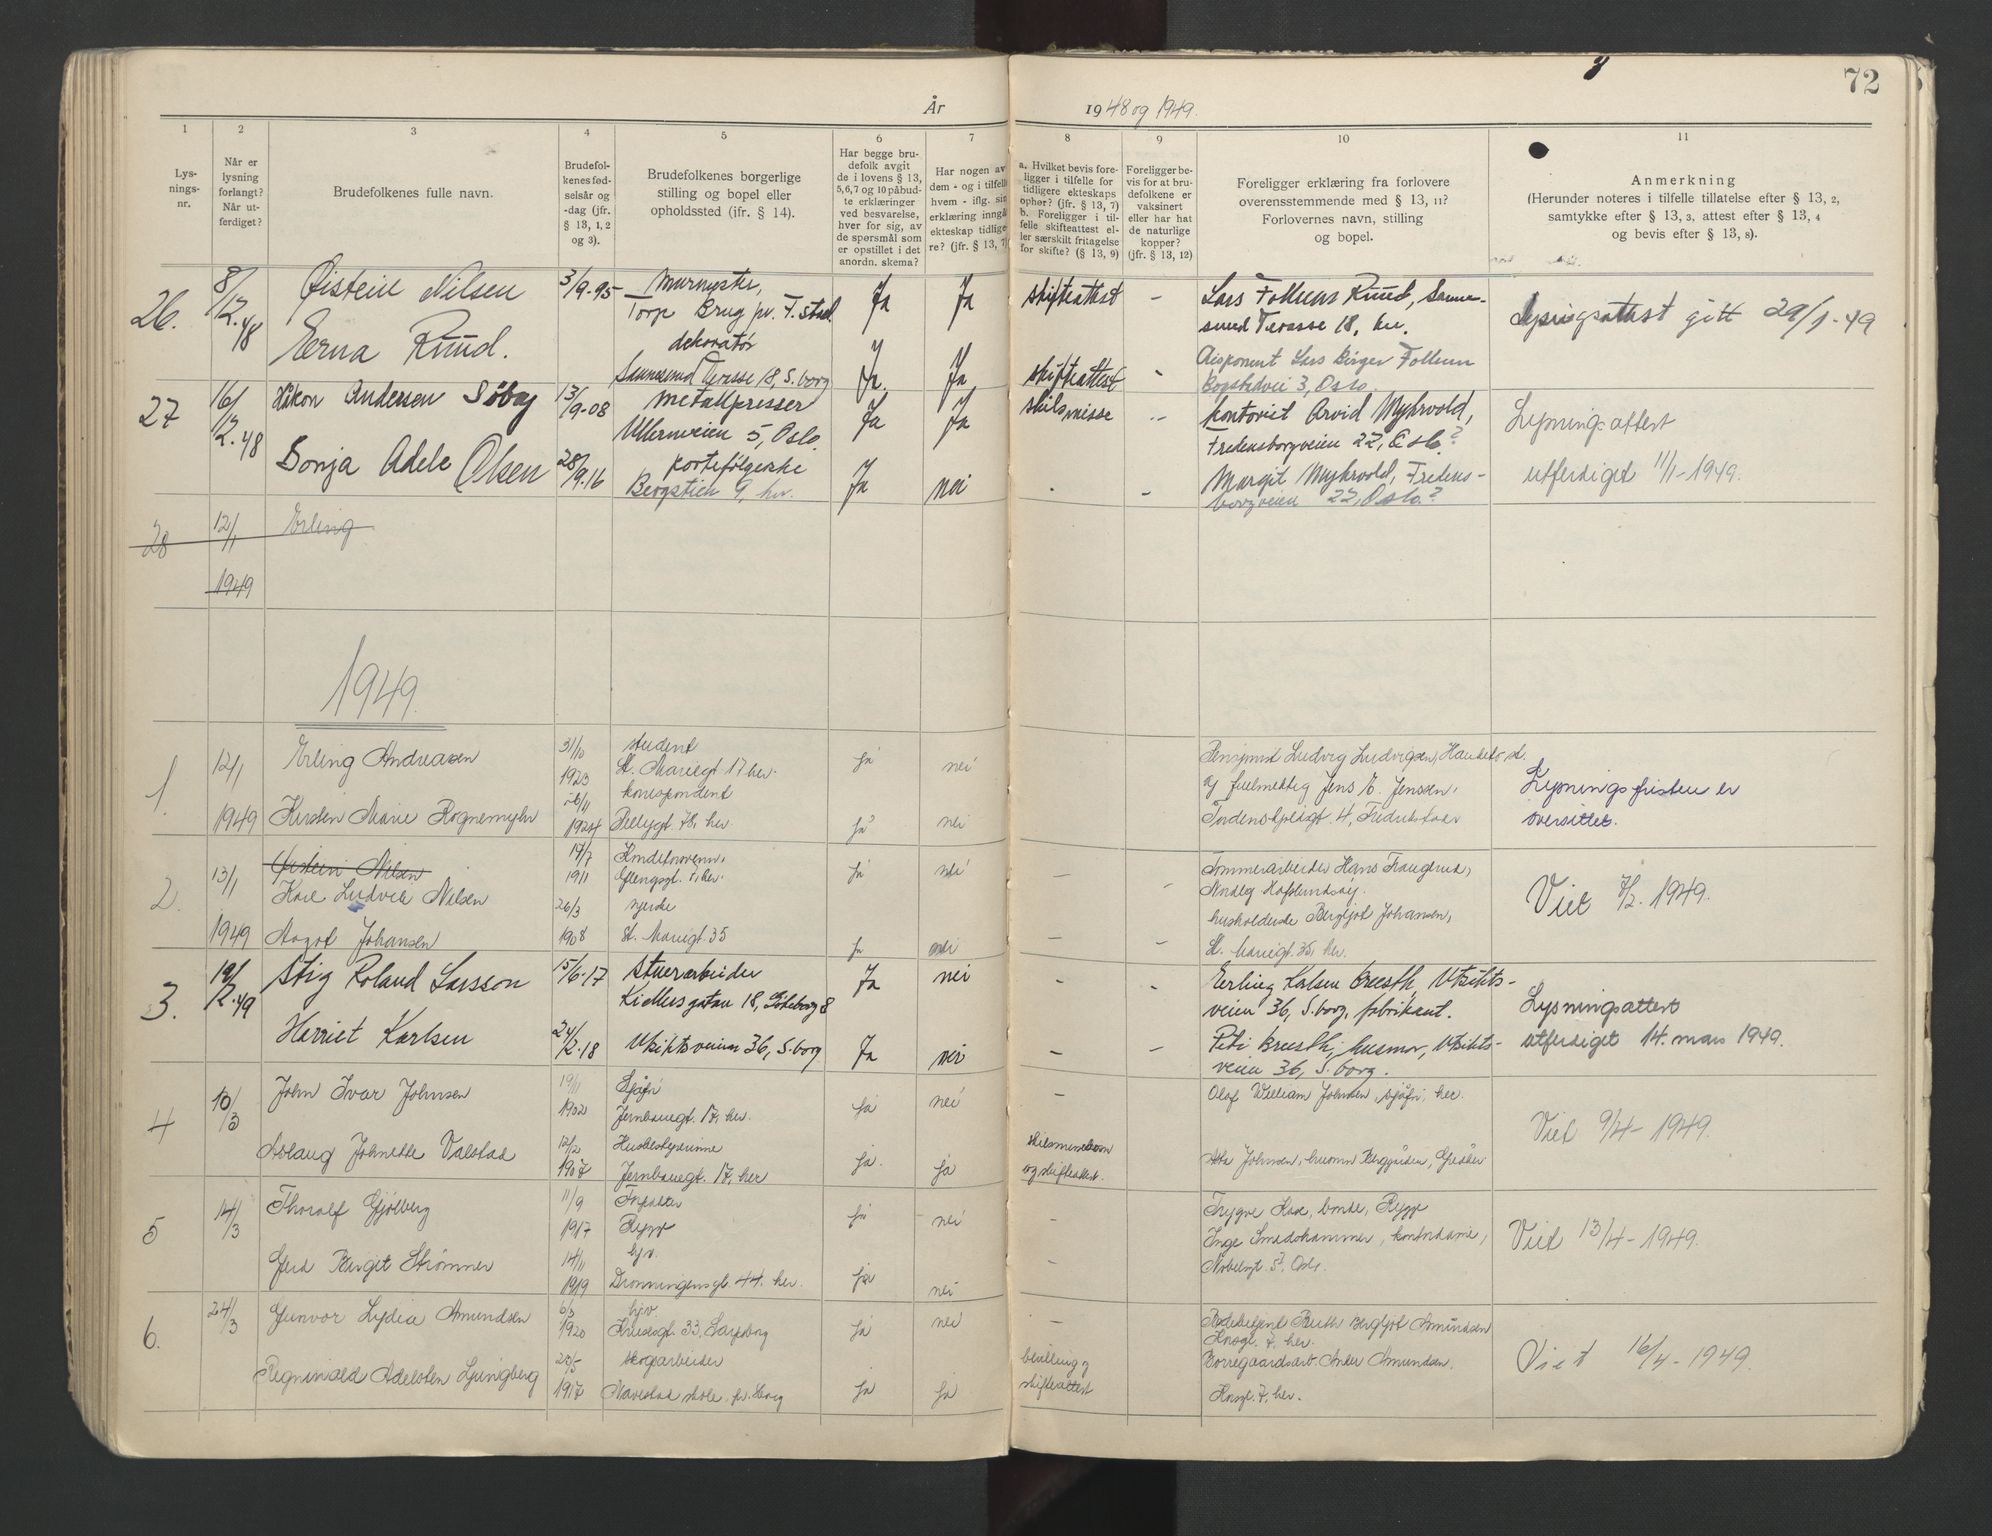 72
År 1948 og 1949.
1 2 3 4 5 6 7 8 9 10 11
Lysnings-nr.
Når er lysning forlangt? Når utferdiget?
Brudefolkenes fulle navn.
Brudefolkenes fødselsår og -dag (jfr. § 13, 1, 2 og 3).
Brudefolkenes borgerlige stilling og bopel eller opholdssted (ifr. § 14).
Har begge brudefolk avgit de i lovens § 13, 5,6,7 og 10 påbudte erklæringer ved besvarelse, hver for sig, av de spørsmål som er opstillet i det anordn. skema?
Har nogen av dem - og i tilfelle hvem - iflg. sin erklæring inngått ekteskap tidligere? (jfr. § 13, 7)
a. Hvilket bevis foreligger i tilfelle for tidligere ekteskaps ophør? (jfr. § 13, 7)
b. Foreligger i tilfelle skifteattest eller særskilt fritagelse for skifte? (§ 13, 9)
Foreligger bevis for at brudefolkene er vaksinert eller har hat de naturlige kopper? (jfr. § 13, 12)
Foreligger erklæring fra forlovere overensstemmende med § 13, 11? Forlovernes navn, stilling og bopel.
Anmerkning
(Herunder noteres i tilfelle tillatelse efter § 13, 2, samtykke efter § 13, 3, attest efter § 13, 4 og bevis efter § 13, 8).
26. 8/12.48 Øistein Nilsen 3/9-95 Murmester, Torp Brug pr. F.stad. Ja Ja skifteattest - Lars Follum Ruud, Sannesund Terasse 18, her. Lysningsattest gitt 29/1-49
Erna Ruud. dekoratør Sannesund Terasse 18, S.borg Ja. Ja skifteattest - Disponent Lars Birger Follum Bogstadvei 3, Oslo.
27 16/12.48 Håkon Andersen Søby 13/9-08 metallpresser Ullernveien 5, Oslo. Ja Ja skilsmisse - kontorist Arvid Myhrvold, Fredensborgveien 22, Oslo? Lysningsattest
Sonja Adele Olsen 28/9.16 portefølgeske Bergstien 9, her. Ja nei - Margit Myhrvold, Fredensborgveien 22, Oslo? utferdiget 11/1-1949.
28 12/1 1949 Erling
1949.
1 12/1 Erling Andreassen 31/10 1923 student St. Mariegt 17 her. ja nei Ludvig Ludvigsen, Lysningsfristen er
1949 Kirsten Marie Rognemyhr 26/11 1924 korrespondent 78, her. ja nei og fullmektig Jens E. Jenssen, Tordenskjoldsgt. 4, Fredrikstad oversittet.
2. 13/1 Øistein Nilsen
Karl Ludvik Nilsen 14/7 1911 her. ja nei - - Tømmerarbeider Hans Haugerud, Viet 7/2. 1949.
1949 Aagot Johansen 26/3 1908 syerske St. Mariegt 35 ja nei - - husholderske Bergljot Johansen, St. Mariegt. 35, her.
3. 19/2.49 Stig Roland Larsson 15/6-17 Stuerarbeider Kiellersgatan 18, Göteborg 8 Ja nei - - Erling Kalsen Bresth, Utsiktsveien 36, S.borg, fabrikant. Lysningsattest
Herriet Karlsen 24/2-18 Utsiktsveien 36, S.borg Ja nei - - Peti Bresth, husmor, Utsiktsveien 36, S.borg. utferdiget 14. mars 1949.
4 10/3 John Ivar Johnsen 19/11 1902 Sjåfør Jernbanegt. 17, her. ja nei - Olaf William Johnsen, sjåfør, her. Viet 9/4-1949.
Aslaug Johnette Valstad 12/2 1907 Husbestyrerinne Jernbanegt. 17, her ja. ja og skifteattest. Johnsen, husmor Greåker
5 14/3 Thoralf Gjølberg 11/9 1917 Rygge ja nei - Trygve Hase, bonde, Rygge Viet 13/4-1949.
Gerd Margit Strømner 14/11 1919 hjv. Dronningensgt. 44. her. ja nei - Inge Smedshammer, kontordame, Nobelsgt. 5? Oslo.
6. 24/3 Gunvor Lydia Amundsen 6/3 1920 hjv Krusesgt. 33, Sarpsborg ja nei - Ruth Bergljot Amundsen her. Viet 16/4-1949.
Regnivald Adelsten Ljungberg 1917 skogsarbeider Navestad skole, pr. S.borg ja ja bevilling og skifteattest Borregaardsarb. Amundsen, her.